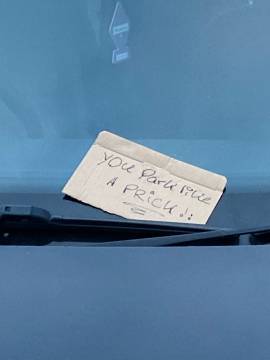 You Park like
A PRICK!!